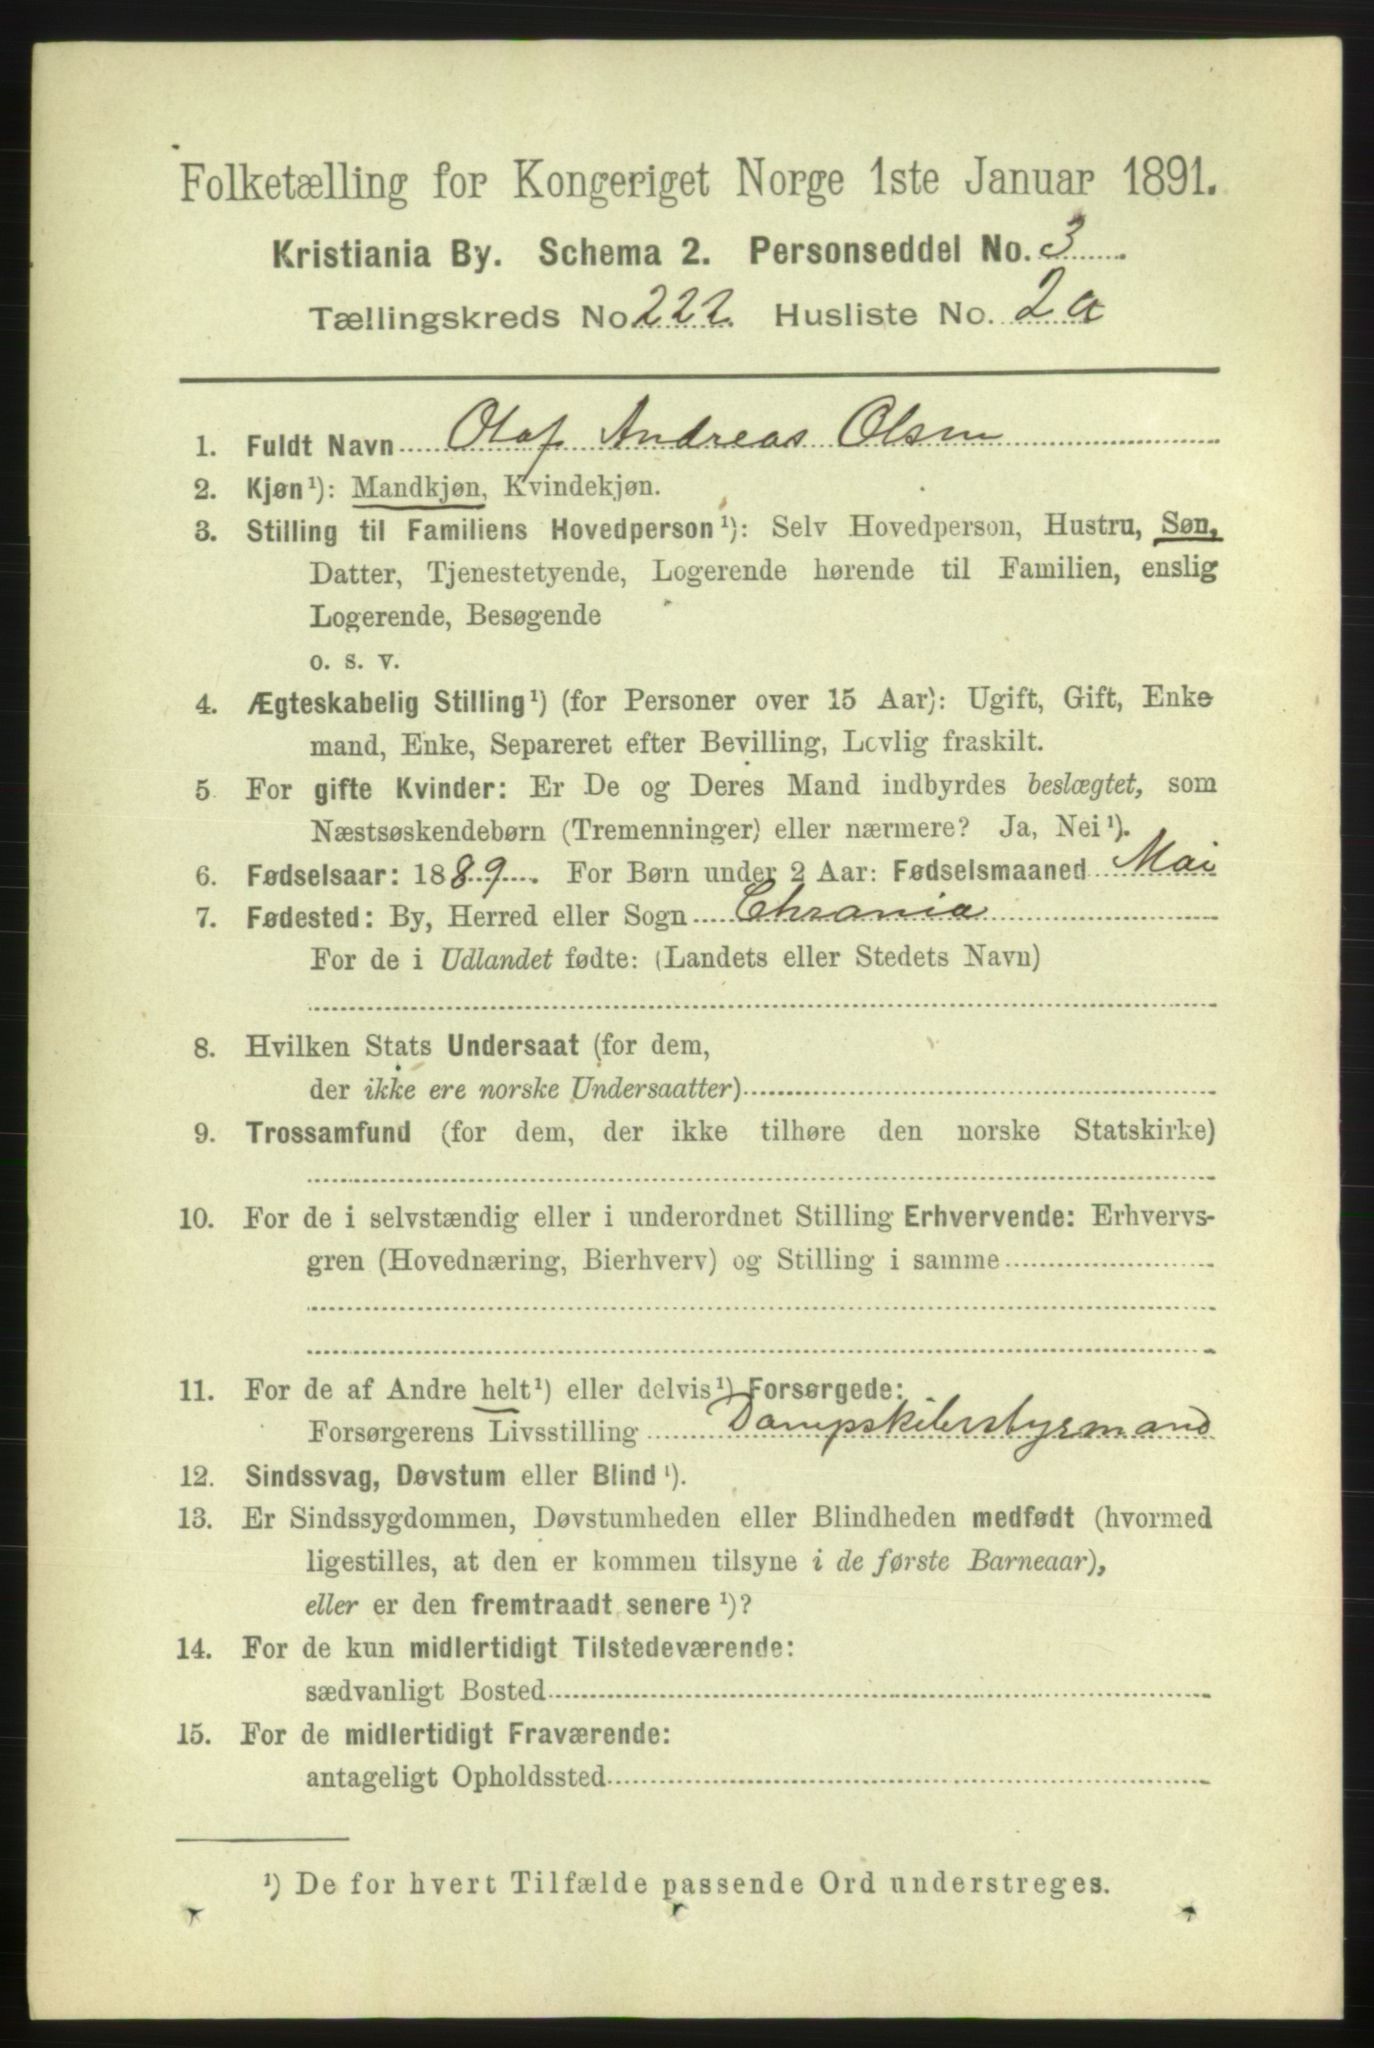 Folketælling for Kongeriget Norge 1ste Januar 1891.
Kristiania By. Schema 2. Personseddel No. 3
Tællingskreds No. 222. Husliste No. 2a
1. Fuldt Navn Olaf Andreas Olsen
2. Kjøn¹): Mandkjøn, Kvindekjøn.
3. Stilling til Familiens Hovedperson¹): Selv Hovedperson, Hustru, Søn,
Datter, Tjenestetyende, Logerende hørende til Familien, enslig
Logerende, Besøgende
o. s. v.
4. Ægteskabelig Stilling¹) (for Personer over 15 Aar): Ugift, Gift, Enke-
mand, Enke, Separeret efter Bevilling, Lovlig fraskilt.
5 For gifte Kvinder: Er De og Deres Mand indbyrdes beslægtet, som
Næstsøskendebørn (Tremenninger) eller nærmere? Ja, Nei¹).
6. Fødselsaar: 1889. For Børn under 2 Aar: Fødselsmaaned Mai
7. Fødested: By, Herred eller Sogn Chrania
For de i Udlandet fødte: (Landets eller Stedets Navn)
8. Hvilken Stats Undersaat (for dem,
der ikke ere norske Undersaatter)
9. Trossamfund (for dem, der ikke tilhøre den norske Statskirke)
10. For de i selvstændig eller i underordnet Stilling Erhvervende: Erhvervs-
gren (Hovednæring, Bierhverv) og Stilling i samme
11. For de af Andre helt¹) eller delvis¹) Forsørgede:
Forsørgerens Livsstilling Dampskibsstyrmand
12. Sindssvag, Døvstum eller Blind¹).
13. Er Sindssygdommen, Døvstumheden eller Blindheden medfødt (hvormed
ligestilles, at den er kommen tilsyne i de første Barneaar),
eller er den fremtraadt senere¹)?
14. For de kun midlertidigt Tilstedeværende:
sædvanligt Bosted
15. For de midlertidigt Fraværende:
antageligt Opholdssted
¹) De for hvert Tilfælde passende Ord understreges.